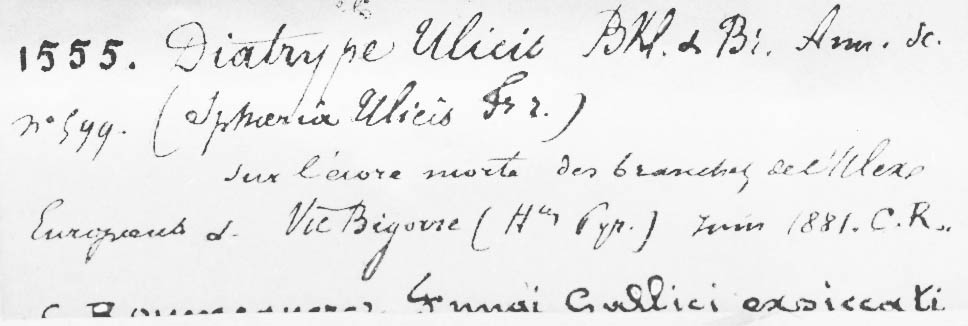 1555. Diatrype Ulicis Bkl. & Br. Ann. Sc.
n° 599. (Sphæria Ulicis Fr.)
sur l'écore morte des branches de l'Ulex
Europæus à Vic Bigorre (Htes Pyr.) Juin 1881. C.R..
Fungi Gallici exsiccati